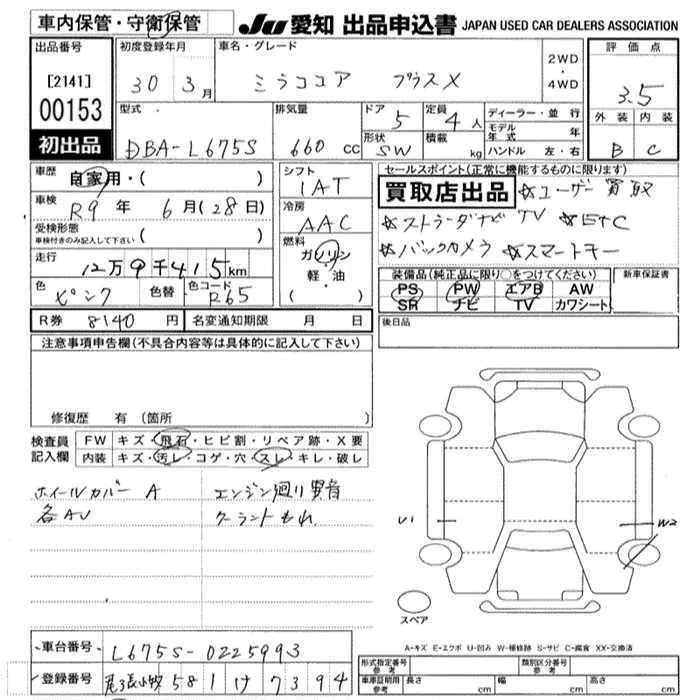 車内保管・守衛保管 JU 愛知 出品申込書 JAPAN USED CAR DEALERS ASSOCIATION
出品番号 初度登録年月 車名・グレード 2WD ・ 4WD 評価点
[2141] 30 3月 ミラココア プラスX 3.5
00153 型式 排気量 ドア 定員 ディーラー・並行 外装 内装
DBA-L675S 660 cc 5 4人 モデル年式 年
初出品 形状 SW 積載 kg ハンドル 左・右 B C
車歴 自家用・( ) シフト セールスポイント(正常に機能するものに限ります)
1AT 買取店出品 ☆ユーザー買取
車検 R9年 6月(28日) 冷房 ☆ストラーダナビ TV ☆ETC
受検形態 車検付きのみ記入して下さい ( ) AAC ☆バックカメラ ☆スマートキー
走行 12万9千415km 燃料 ガソリン・軽・油・( )
装備品(純正品に限り○をつけてください) 新車保証書
色 ピンク 色替 色コード R65 PS PW エアB AW
SR ナビ TV カワシート
R券 8140円 名変通知期限 月 日 後日品
注意事項申告欄(不具合内容等は具体的に記入して下さい)
修復歴 有(箇所
検査員記入欄 FW キズ・飛石・ヒビ割・リペア跡・X要
内装 キズ・汚レ・コゲ・穴・スレ・キレ・破レ
ホイールカバー A エンジン廻り異音
各AU クーラントもれ
U1 W2
スペア
A-キズ E-エクボ U-凹み W-補修跡 S-サビ C-腐食 XX-交換済
車台番号 L675S-0225993
形式指定番号 参考 類別区分番号 参考
登録番号 尾張小牧 581 け 7394
車庫証明用 参考 長さ cm 幅 cm 高さ cm